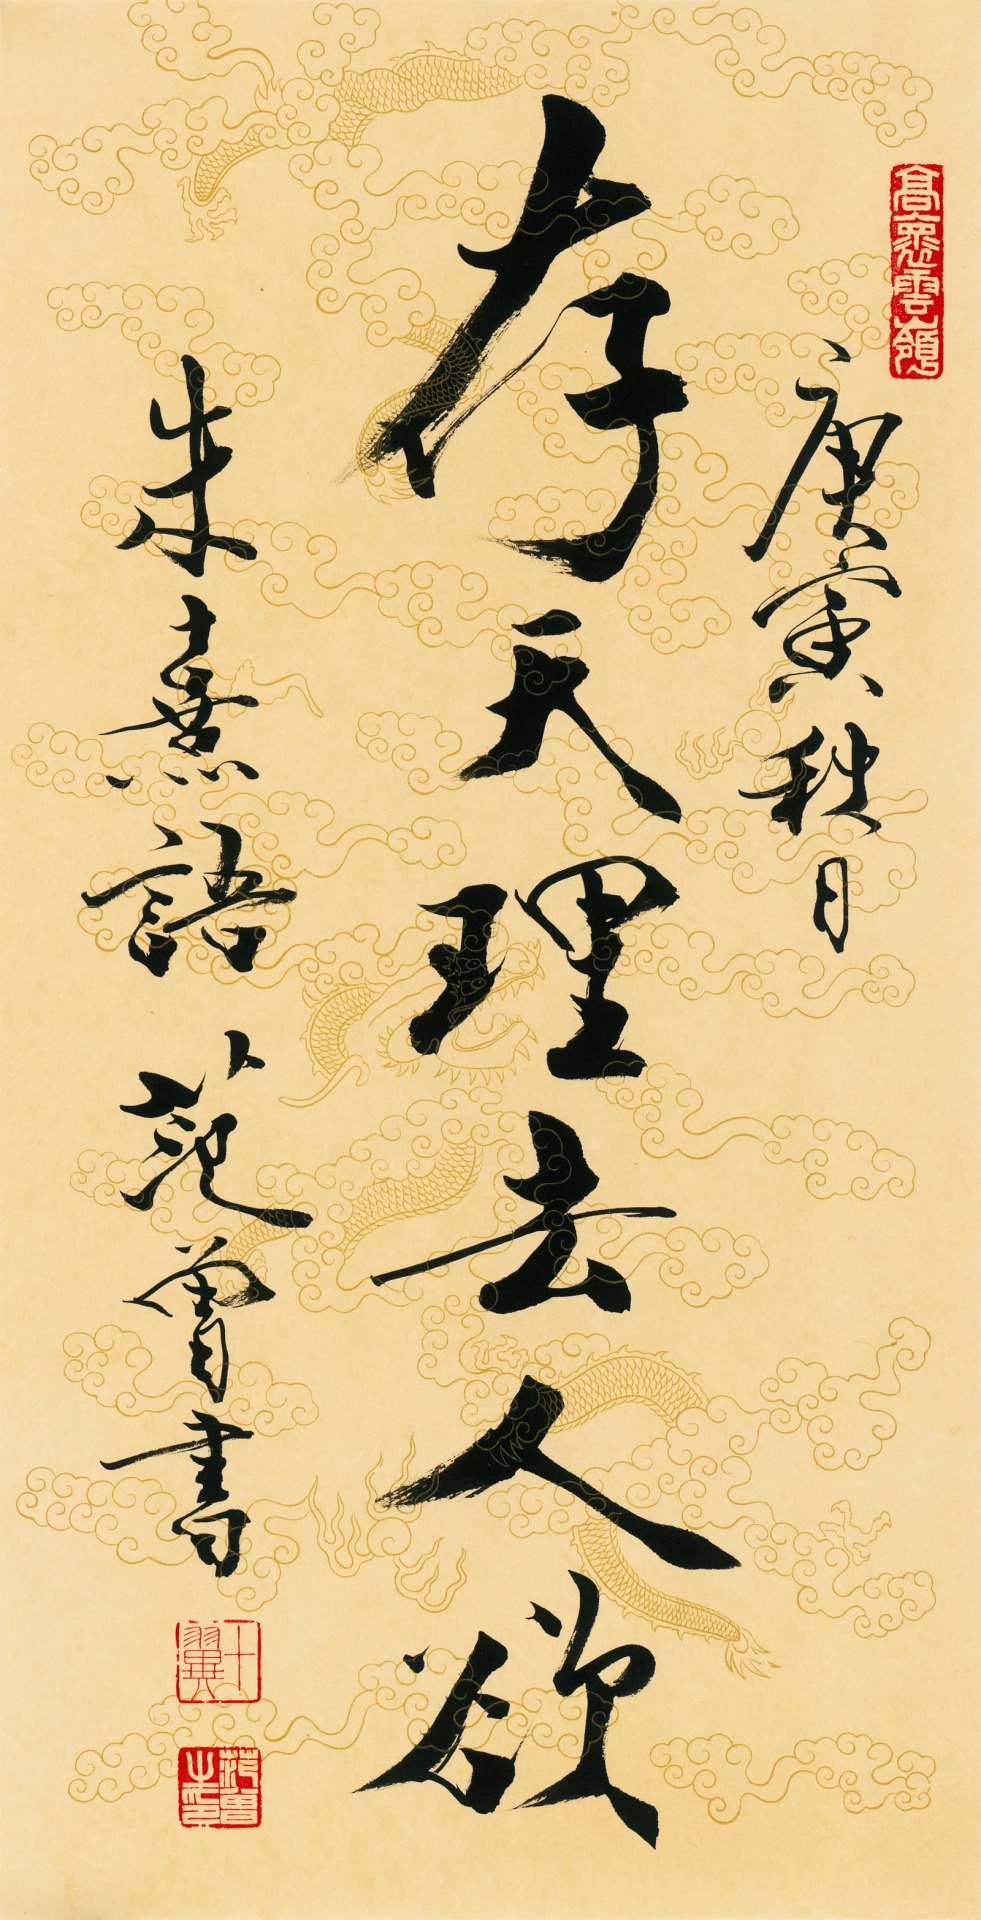 庚寅秋月
存天理去人欲
朱熹語 范曾書
十翼
范曾之印